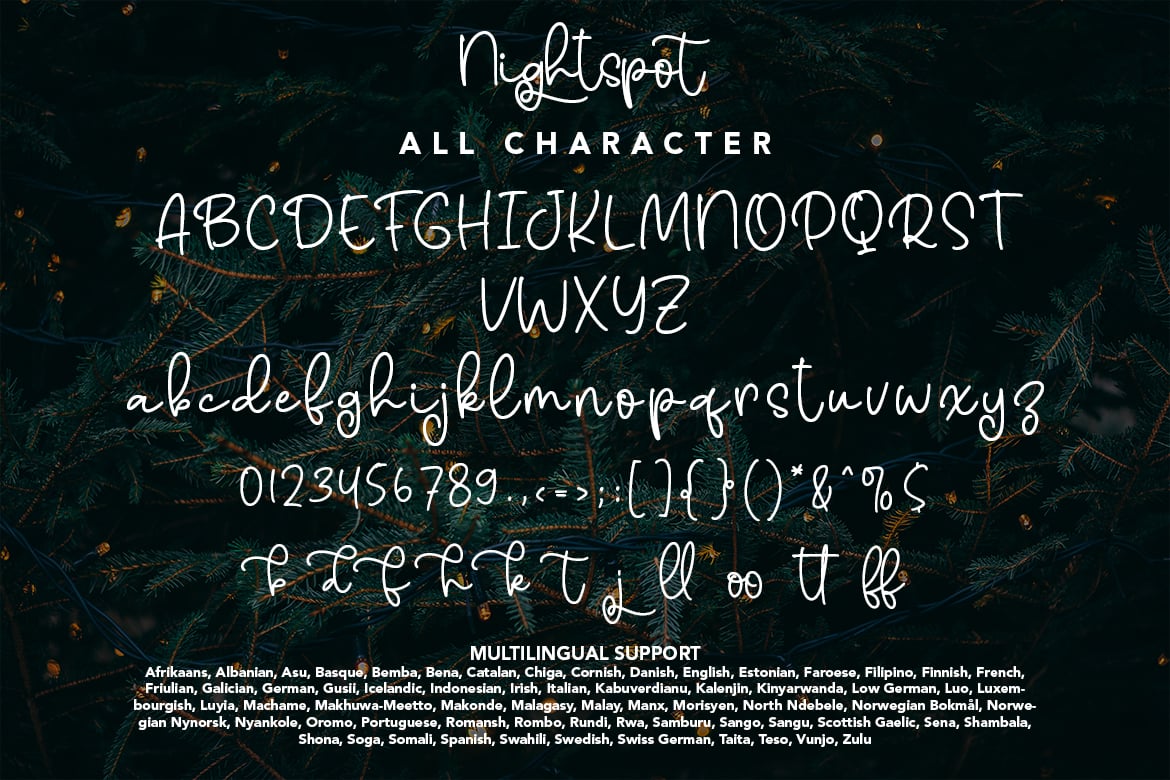 Nightspot
ALL CHARACTER
ABCDEFGHIJKLMNOPQRST
UVWXYZ
abcdefghijklmnopqrstuvwxyz
0123456789.,<=>;:[]{}°()*&^%$
b d f h k t j ll oo tt ff
MULTILINGUAL SUPPORT
Afrikaans, Albanian, Asu, Basque, Bemba, Bena, Catalan, Chiga, Cornish, Danish, English, Estonian, Faroese, Filipino, Finnish, French,
Friulian, Galician, German, Gusii, Icelandic, Indonesian, Irish, Italian, Kabuverdianu, Kalenjin, Kinyarwanda, Low German, Luo, Luxem-
bourgish, Luyia, Machame, Makhuwa-Meetto, Makonde, Malagasy, Malay, Manx, Morisyen, North Ndebele, Norwegian Bokmål, Norwe-
gian Nynorsk, Nyankole, Oromo, Portuguese, Romansh, Rombo, Rundi, Rwa, Samburu, Sango, Sangu, Scottish Gaelic, Sena, Shambala,
Shona, Soga, Somali, Spanish, Swahili, Swedish, Swiss German, Taita, Teso, Vunjo, Zulu